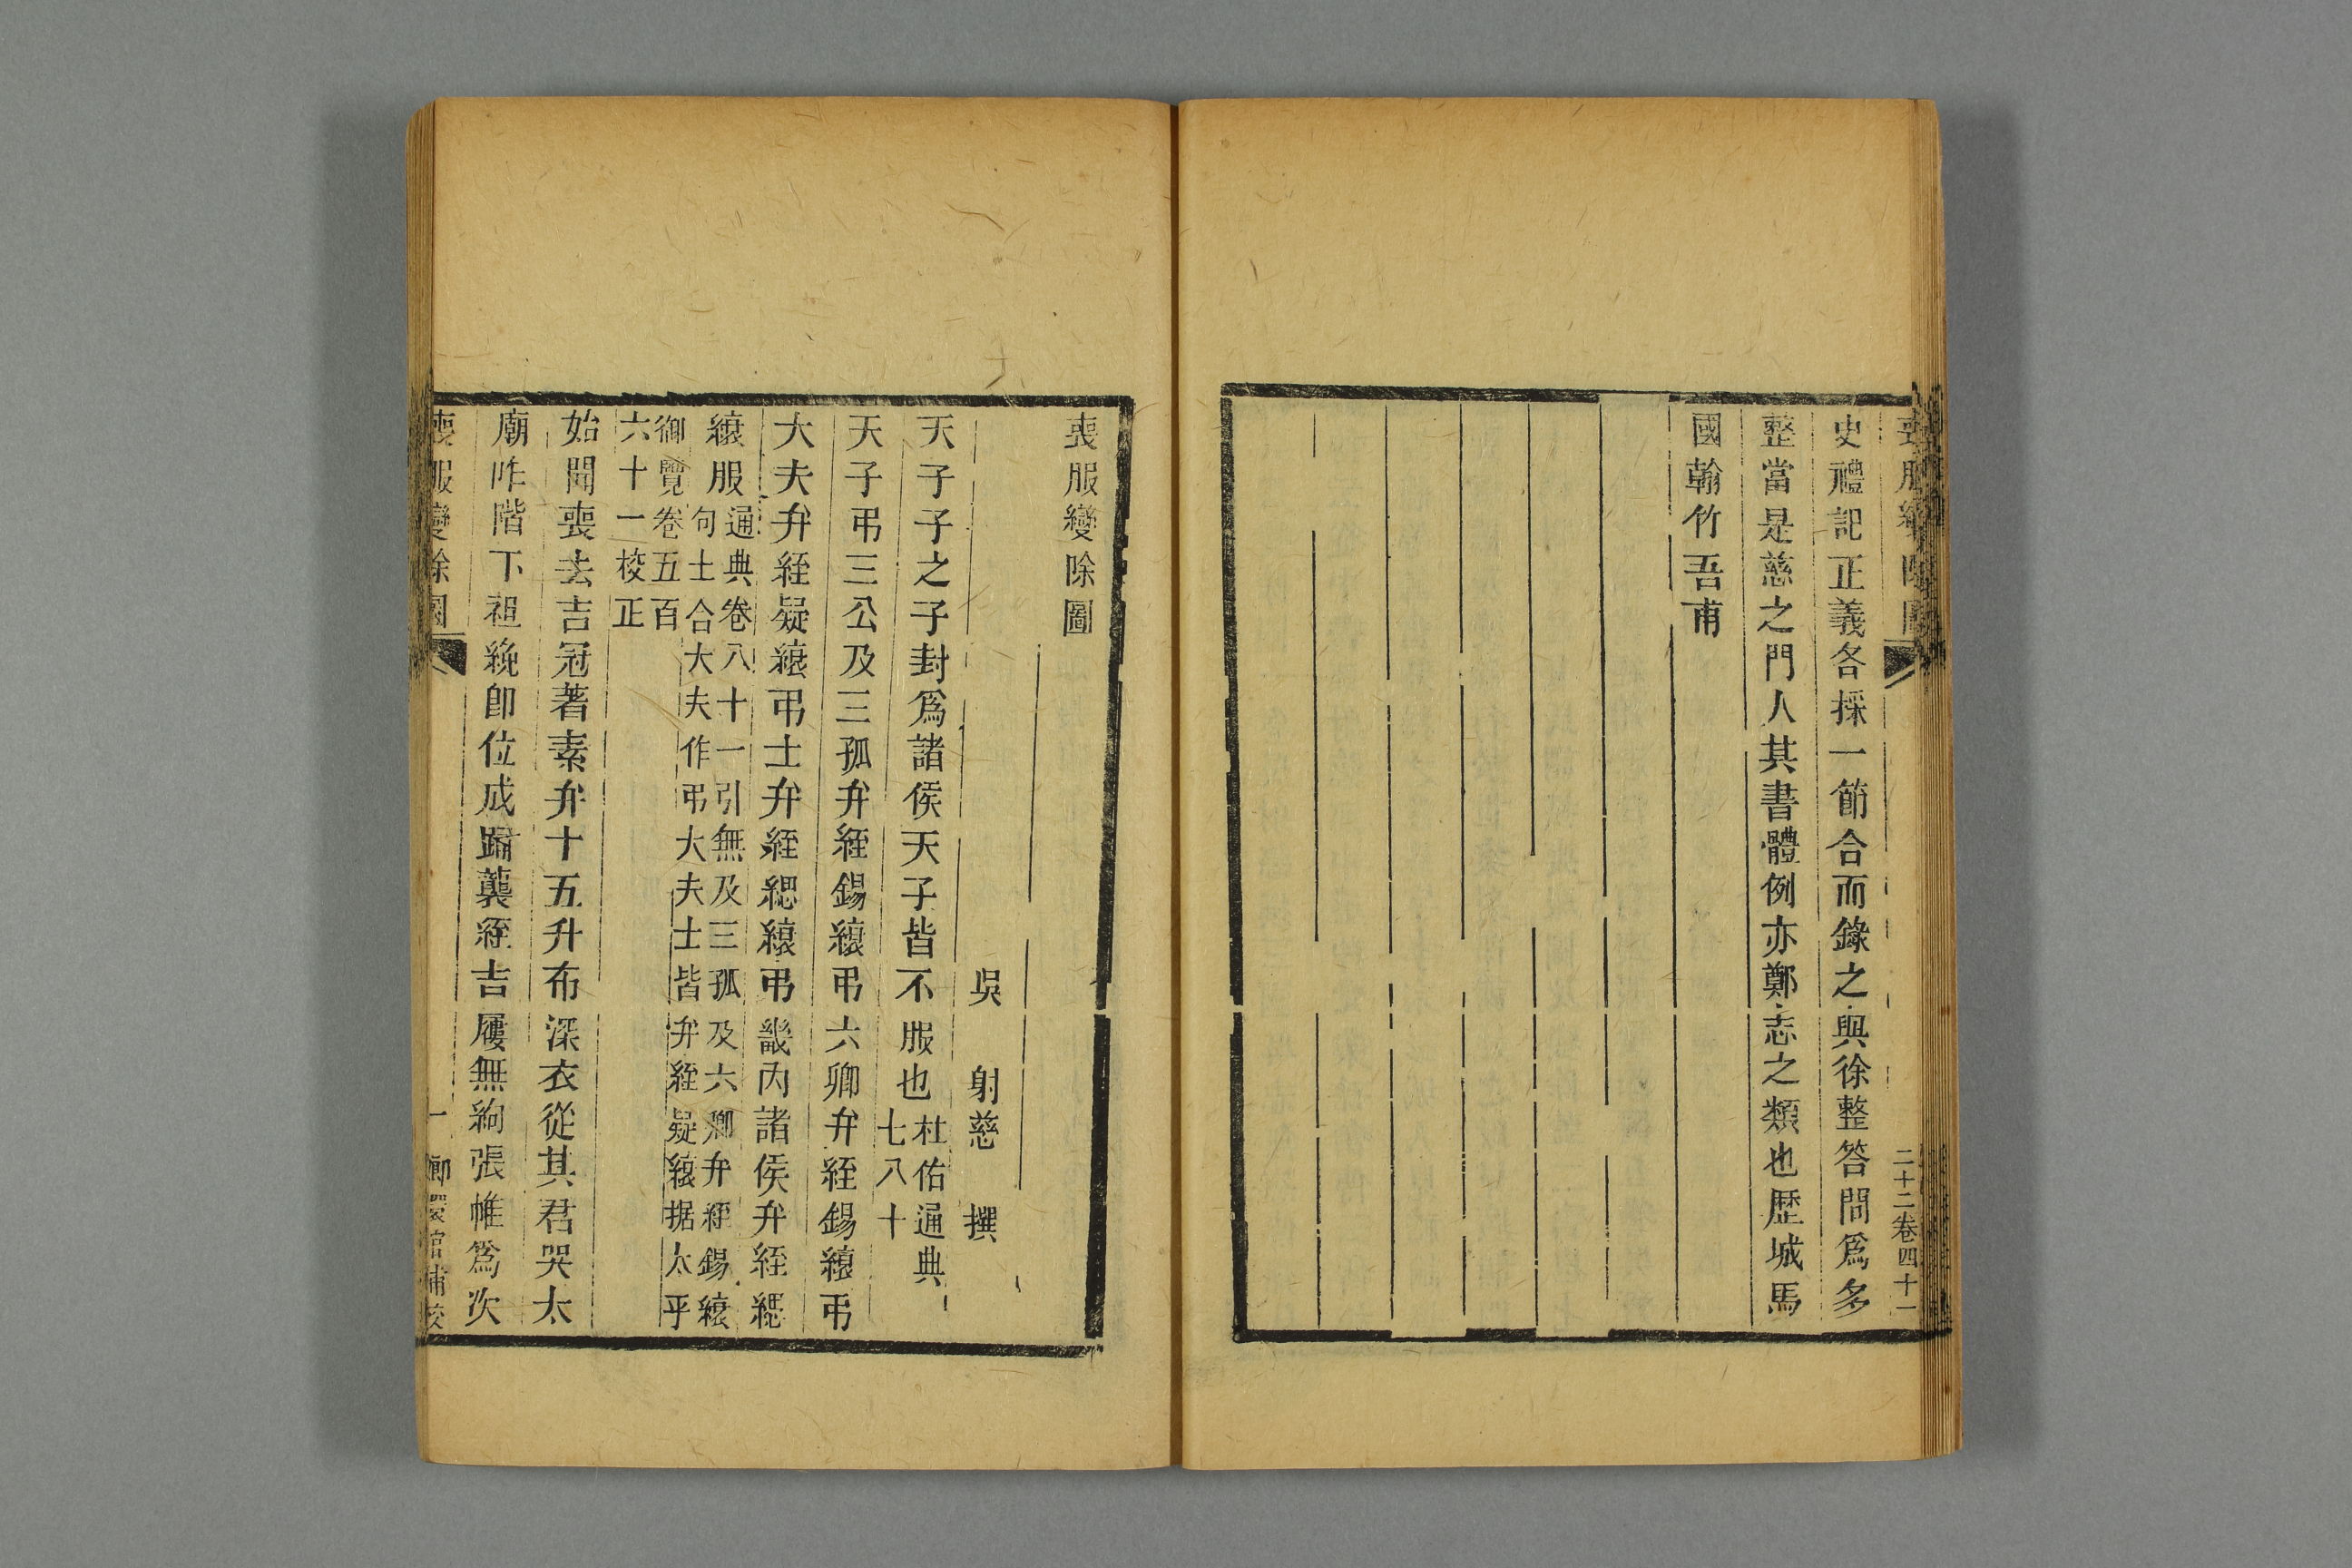 喪服變除圖
二十二卷四十一
史禮記正義各採一節合而錄之與徐整答問爲多
整當是慈之門人其書體例亦鄭志之類也歷城馬
國翰竹吾甫
喪服變除圖
吳 射慈 撰
天子子之子封爲諸侯天子皆不服也杜佑通典
七八十
天子弔三公及三孤弁絰錫縗弔六卿弁絰錫縗弔
大夫弁絰疑縗弔士弁絰緦縗弔畿內諸侯弁絰緦
縗服通典卷八十一引無及三孤及六卿弁絰錫縗
句士合大夫作弔大夫士皆弁絰疑縗据太平
御覽卷五百
六十一校正
始聞喪去吉冠著素弁十五升布深衣從其君哭太
廟阼階下袒絻卽位成踊襲絰吉屨無絇張帷爲次
喪服變除圖
一
嫏嬛館補校